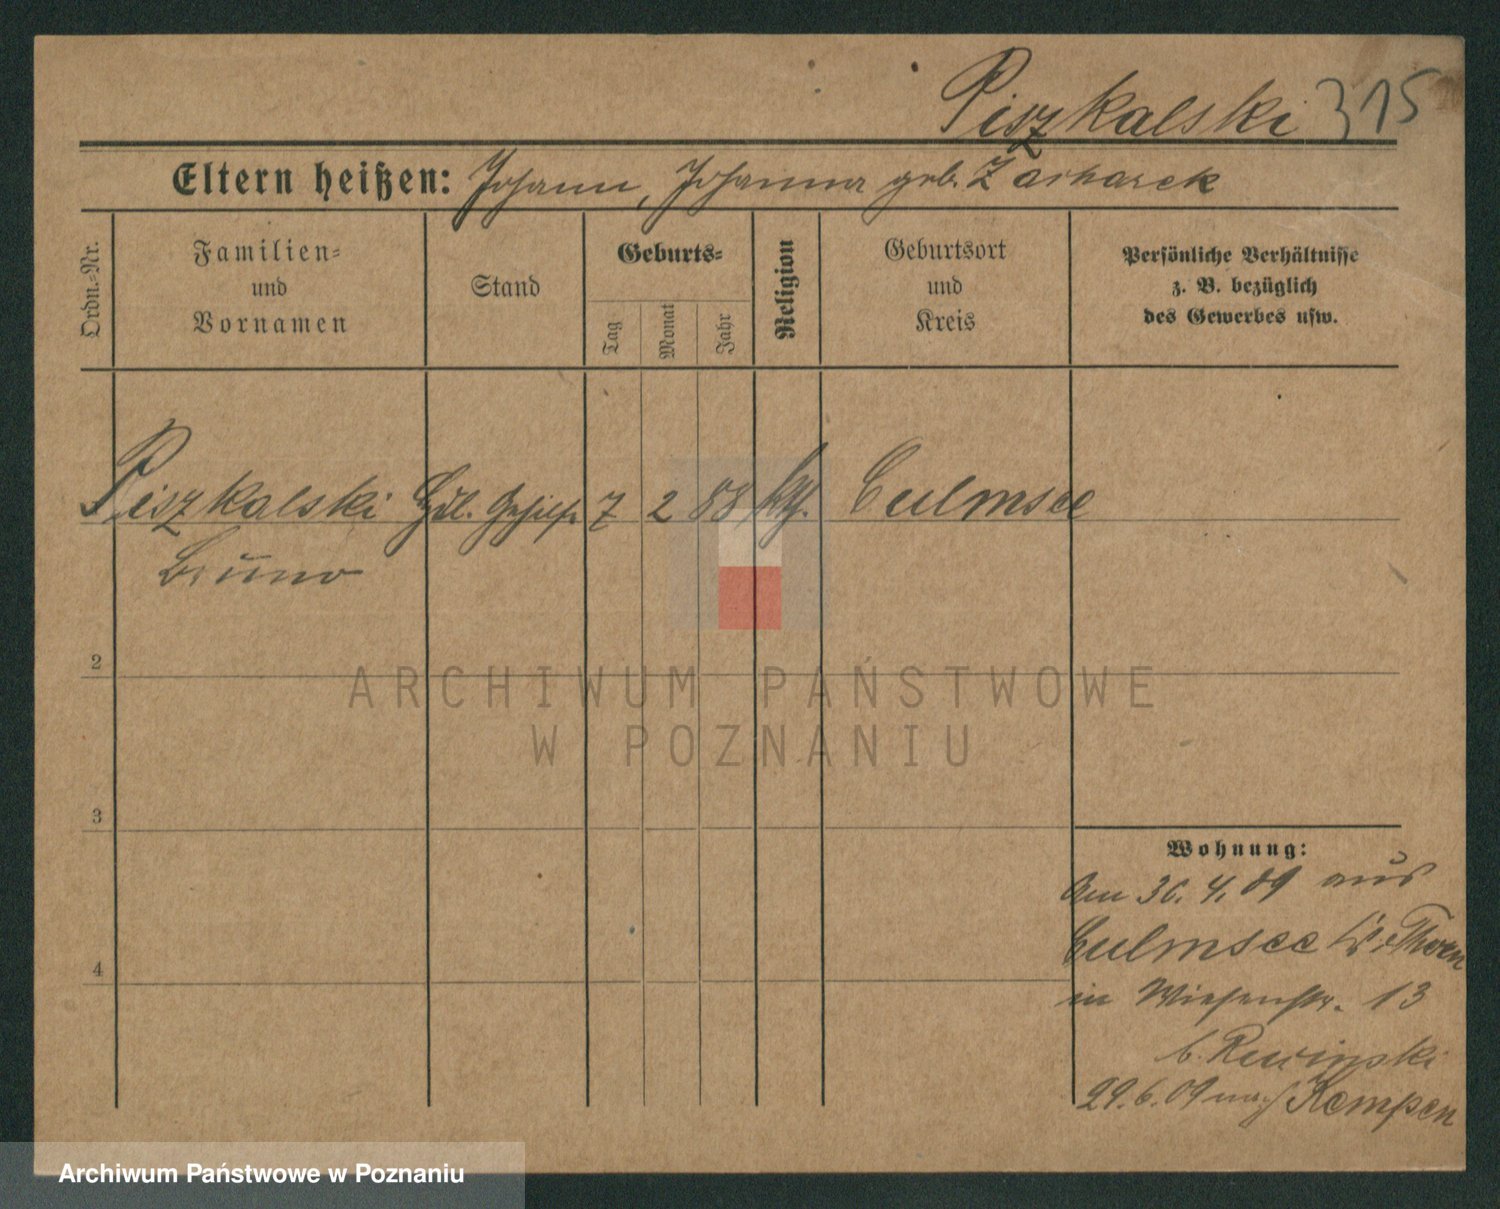 Piszkalski 315
Eltern heißen: Johann, Johanna geb.
Ordn.-Nr.
Familien-
und
Vornamen
Stand
Geburts-
Tag
Monat
Jahr
Religion
Geburtsort
und
Kreis
Persönliche Verhältnisse
z. B. bezüglich
des Gewerbes usw.
Piszkalski Hdl. Gehilfe 7 2 88 kth. Culmsee
Bruno
2
3
4
Wohnung:
Am 30. 4. 09 aus
Culmsee Kr. Thorn
in Wiesenstr. 13
b.
29. 6. 09 nach Kempen
ARCHIWUM PAŃSTWOWE
W POZNANIU
Archiwum Państwowe w Poznaniu